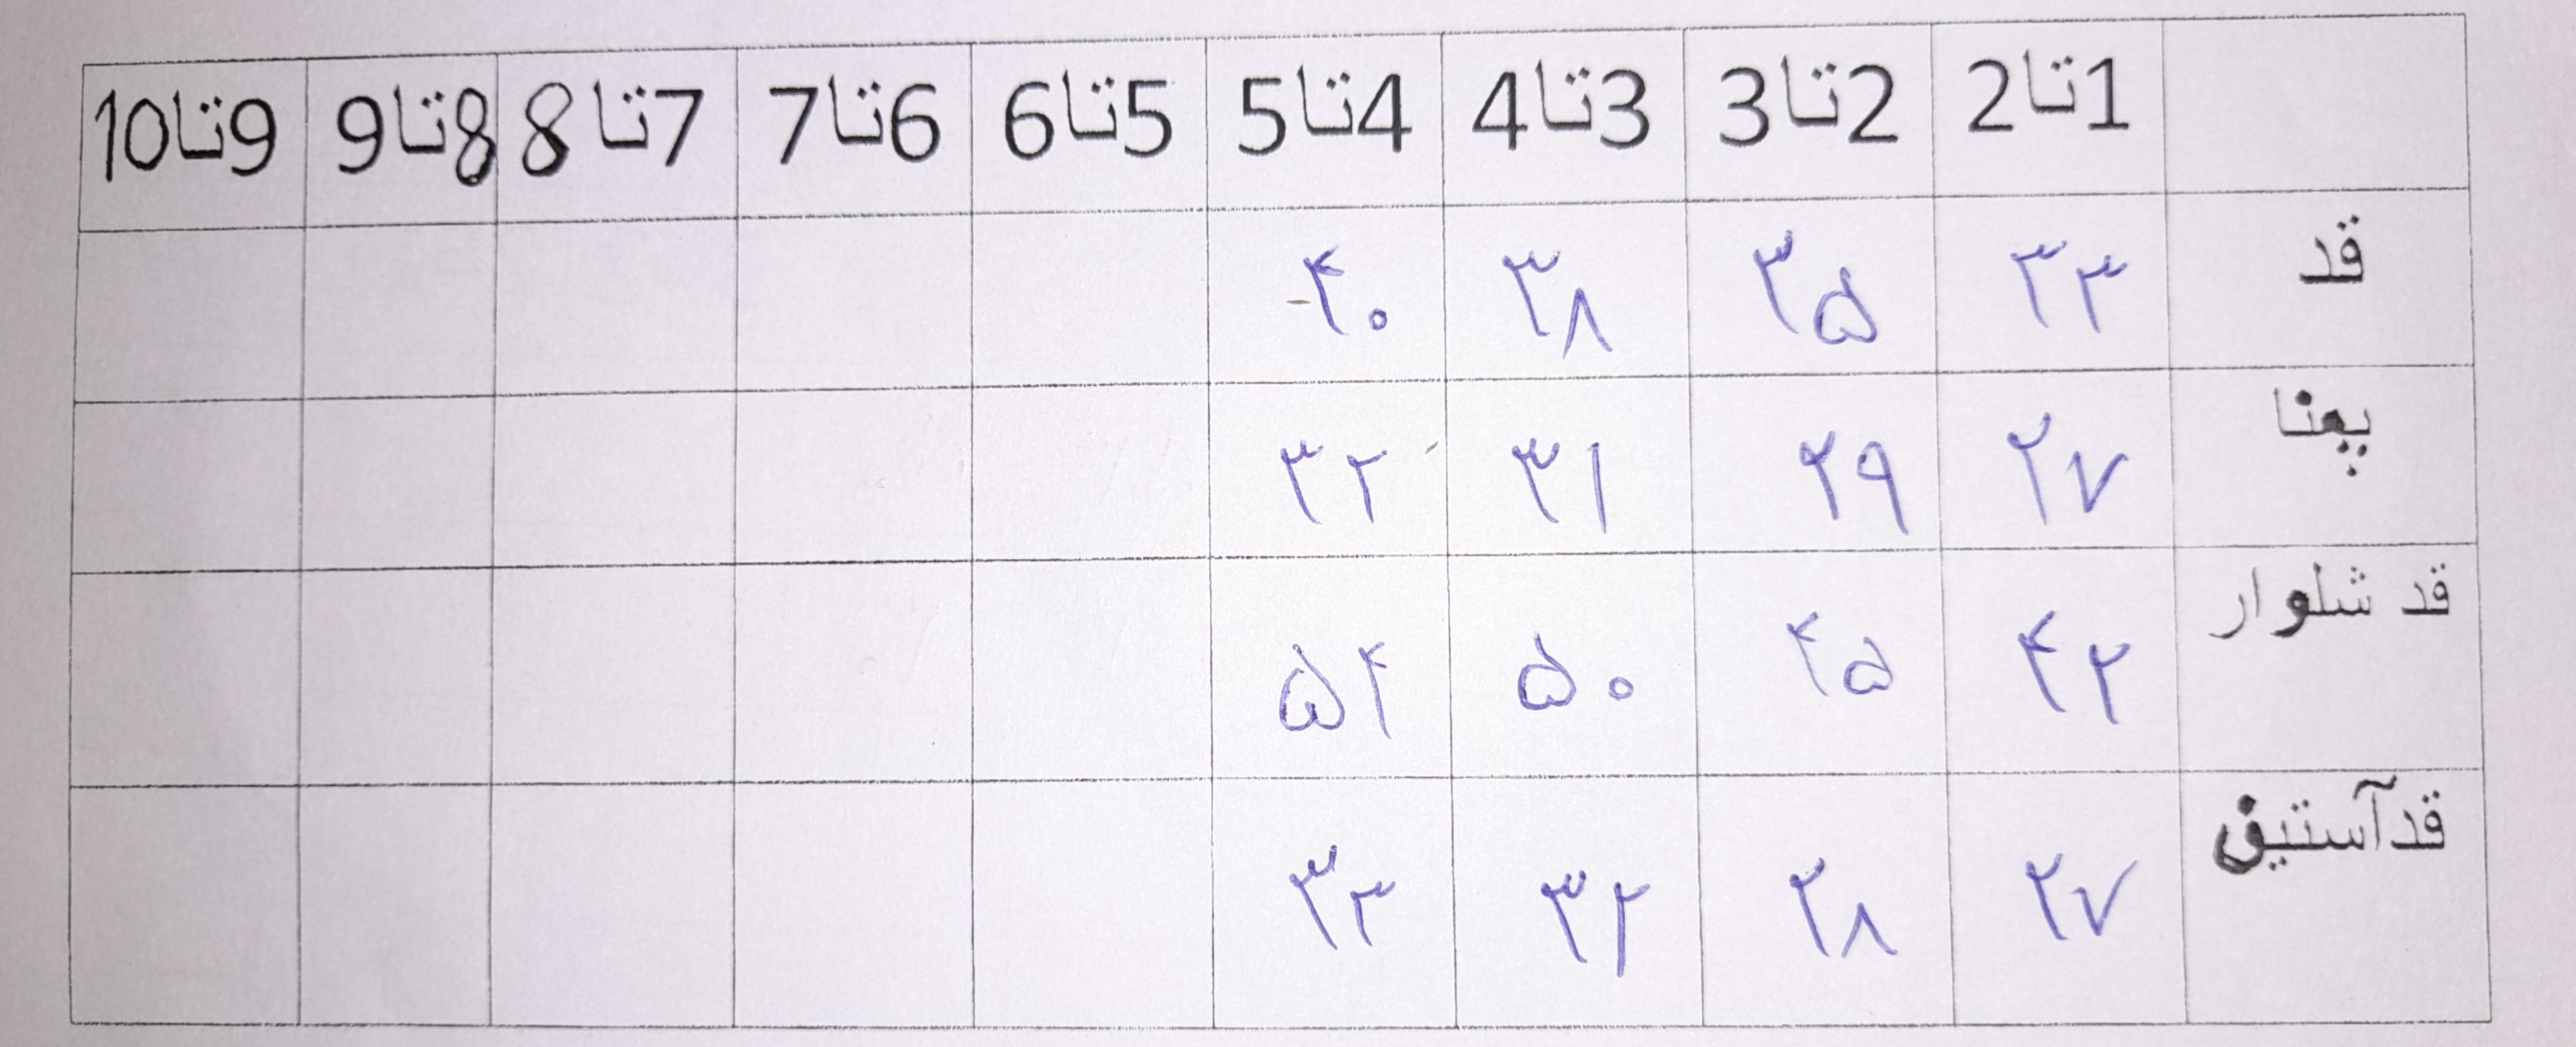 1تا2 2تا3 3تا4 4تا5 5تا6 6تا7 7تا8 8تا9 9تا10
قد ۳۳ ۳۵ ۳۸ ۴۰
پهنا ۲۷ ۲۹ ۳۱ ۳۲
قد شلوار ۴۲ ۴۵ ۵۰ ۵۴
قدآستین ۲۷ ۲۸ ۳۲ ۳۳